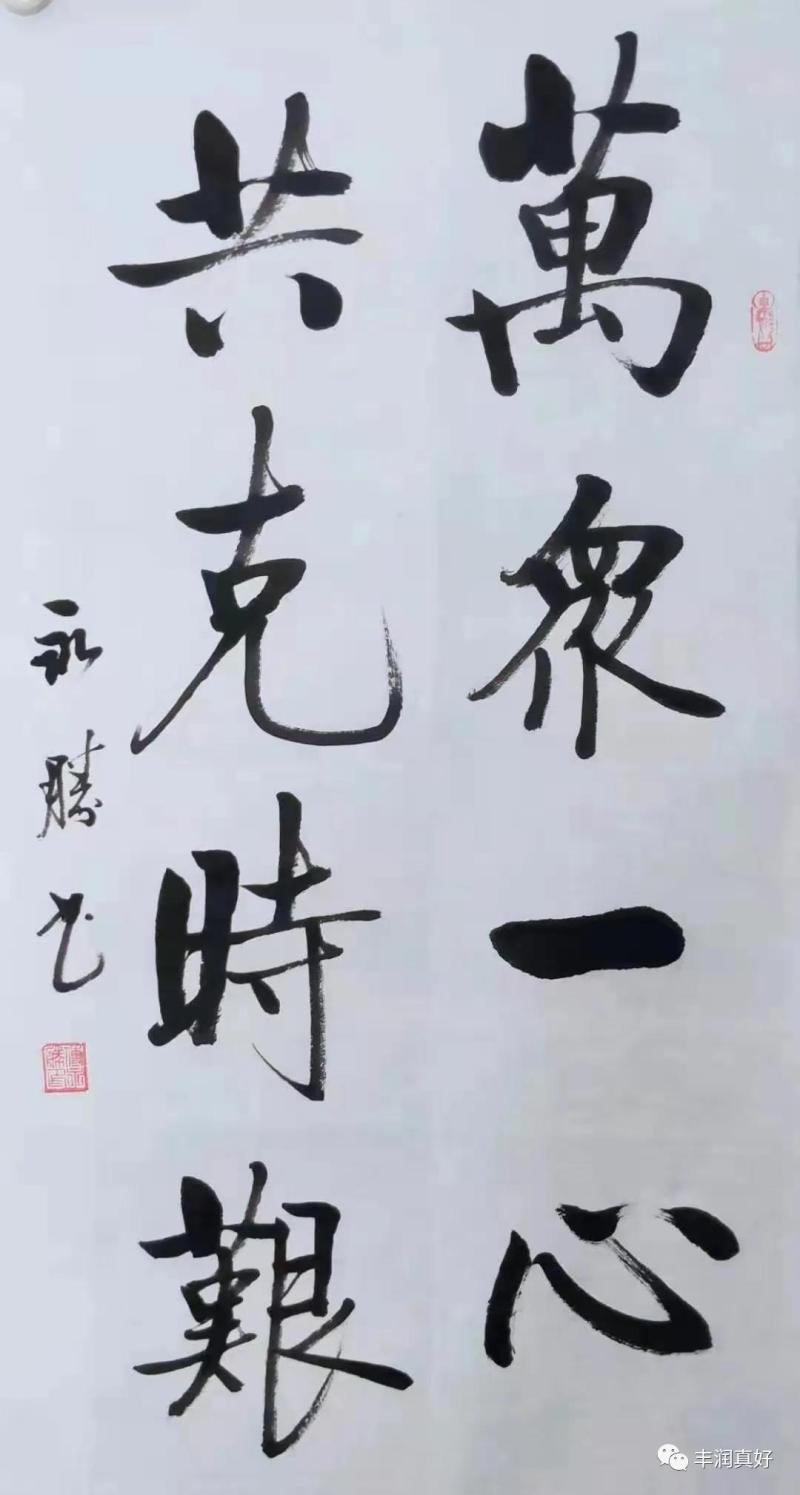 萬眾一心
共克時艱
永勝书
丰润真好